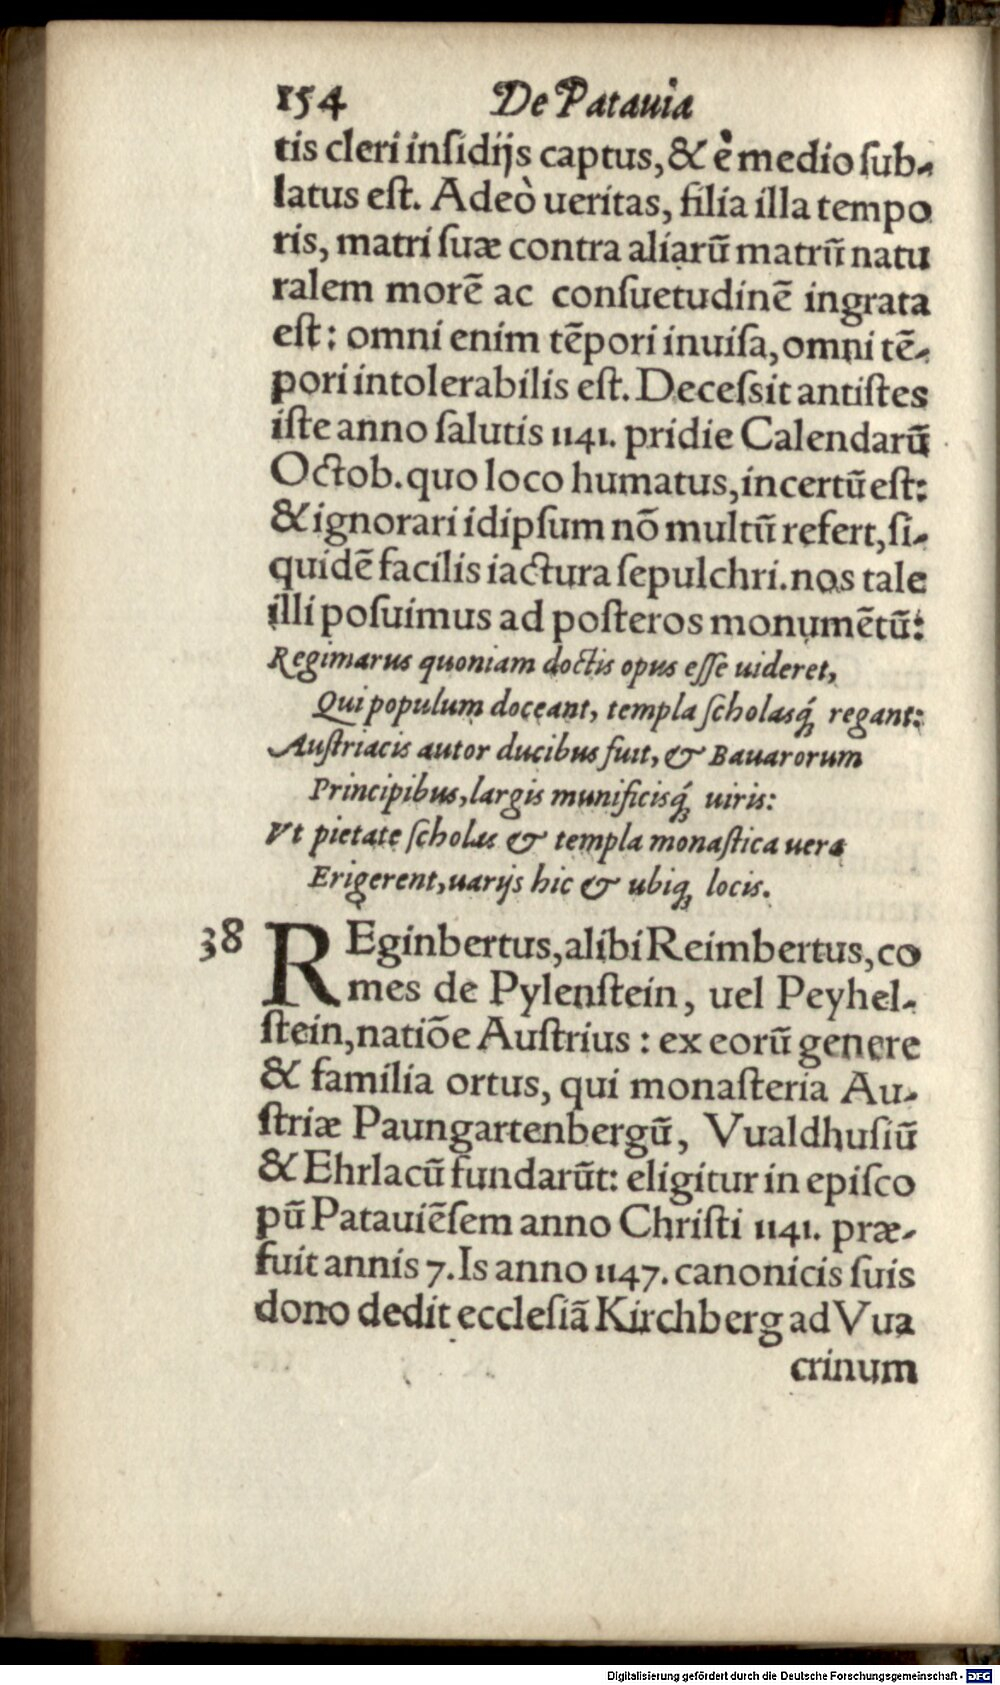 154 De Patauia
tis cleri inſidijs captus, & è medio ſub-
latus eſt. Adeò ueritas, filia illa tempo
ris, matri ſuæ contra aliarū matrū natu
ralem morē ac conſuetudinē ingrata
eſt: omni enim tēpori inuiſa, omni tē-
pori intolerabilis eſt. Deceſsit antiſtes
iſte anno ſalutis 1141. pridie Calendarū
Octob. quo loco humatus, incertū eſt:
& ignorari idipſum nō multū refert, ſi-
quidē facilis iactura ſepulchri. nos tale
illi poſuimus ad poſteros monumētū:
Regimarus quoniam doctis opus eſſe uideret,
Qui populum doceant, templa ſcholasq́; regant:
Auſtriacis autor ducibus fuit, & Bauarorum
Principibus, largis munificisq́; uiris:
Vt pietate ſcholas & templa monaſtica uera
Erigerent, uarijs hic & ubiq; locis.
38 REginbertus, alibi Reimbertus, co
mes de Pylenſtein, uel Peyhel-
ſtein, natiōe Auſtrius : ex eorū genere
& familia ortus, qui monaſteria Au-
ſtriæ Paungartenbergū, Vualdhuſiū
& Ehrlacū fundarūt: eligitur in epiſco
pū Patauiēſem anno Chriſti 1141. præ-
fuit annis 7. Is anno 1147. canonicis ſuis
dono dedit eccleſiā Kirchberg ad Vua
crinum
Digitalisierung gefördert durch die Deutsche Forschungsgemeinschaft - DFG